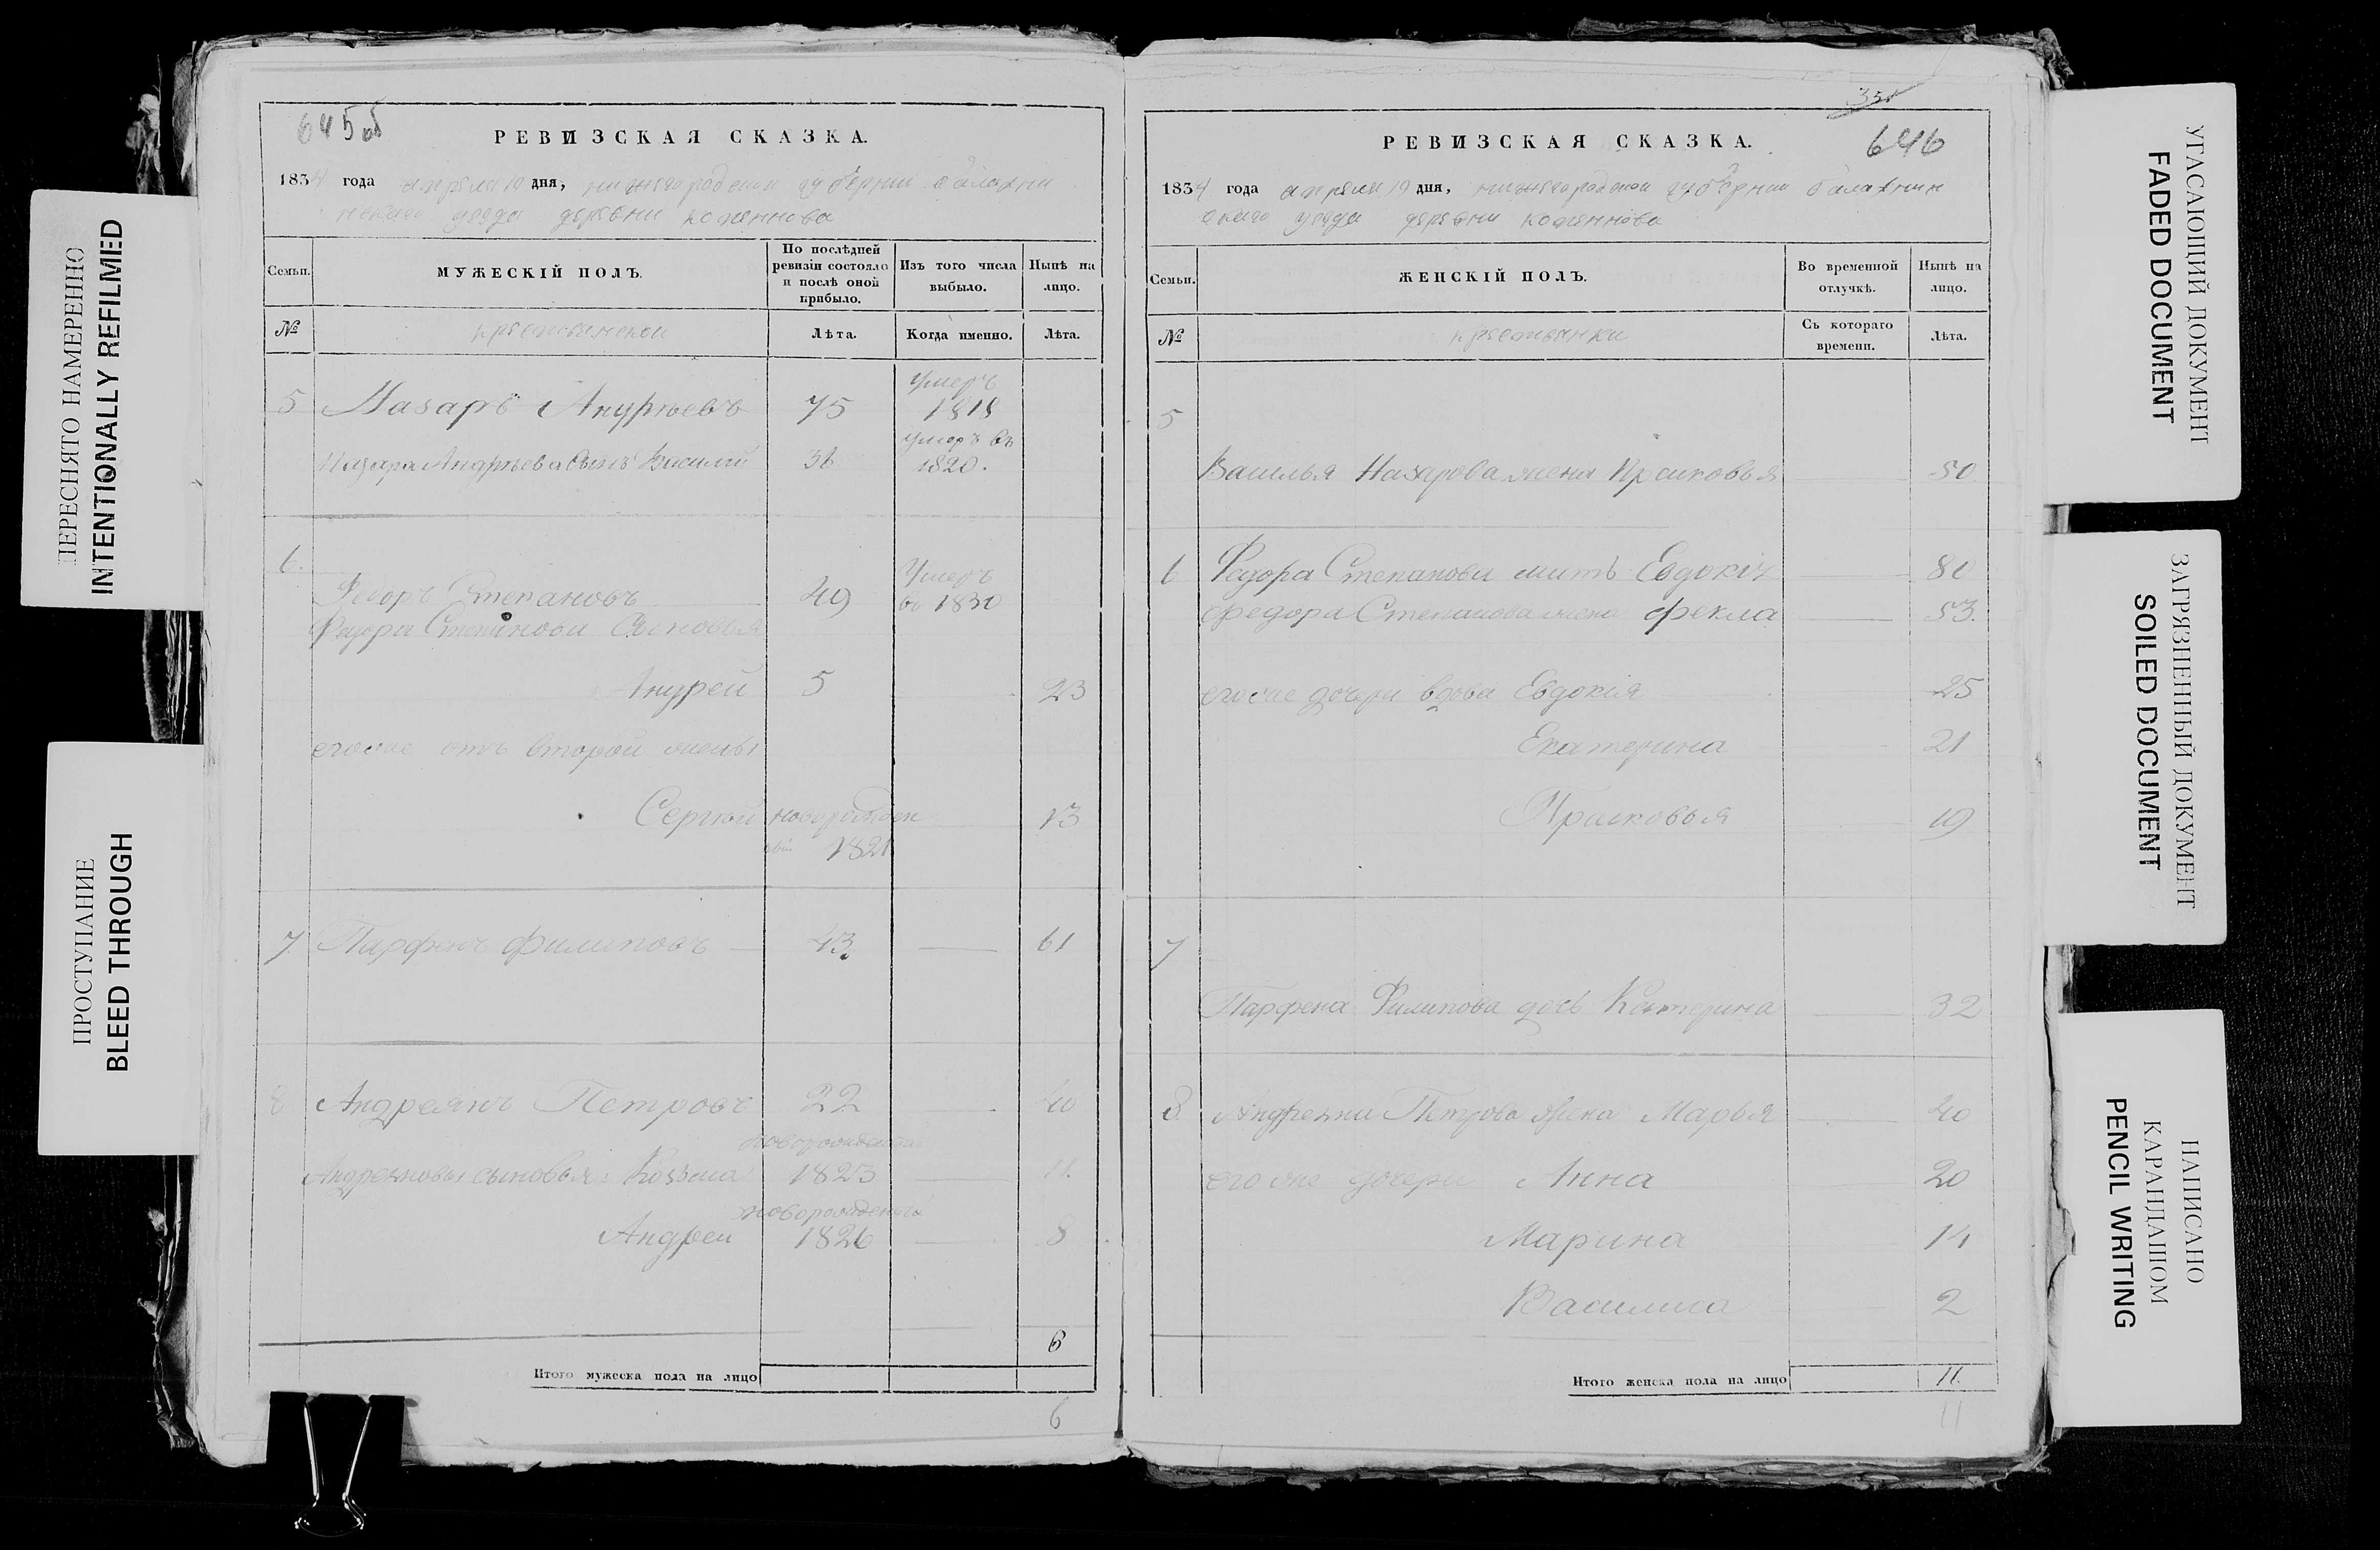 ПЕРЕСНЯТО НАМЕРЕННО
INTENTIONALLY REFILMED
ПРОСТУПАНИЕ
BLEED THROUGH
645 об
РЕВИЗСКАЯ СКАЗКА.
1834 года апреля 19 дня, нижегородской губернии балахни
нскаго уезда деревни
Семьи.
МУЖЕСКІЙ ПОЛЪ.
По послѣдней ревизіи состояло и послѣ оной прибыло.
Изъ того числа выбыло.
Нынѣ на лицо.
№
Лѣта.
Когда именно.
Лѣта.
5 Назаръ Андреевъ 75 Умеръ 1818
Назара Андреева сынъ Василий 36 умеръ въ 1820.
6.
Федоръ Степановъ 49 Умеръ въ 1830
Федора Степанова Сыновья
Андрей 5 23
егоже отъ второй жены
Сергей новорожден 13
1821
7 Парфенъ Филиповъ 43 61
8 Андреянъ Петровъ 22 40
Андреяновы сыновья Козьма новорожденный 1823 11.
Андрей новорожденъ 1826 8
6
Итого мужеска пола на лицо
6
351
646
РЕВИЗСКАЯ СКАЗКА.
1834 года апреля 19 дня, нижегородской губернии балахнин
скаго уезда деревни
Семьи.
ЖЕНСКІЙ ПОЛЪ.
Во временной отлучкѣ.
Нынѣ на лицо.
№
крестьянки
Съ котораго времени.
Лѣта.
5
Василья Назарова жена Прасковья 50
6 Федора Степанова мать Евдокия 80
Федора Степанова жена Фекла 53.
егоже дочери вдова Евдокия 25
Екатерина 21
Прасковья 19
7
Парфена Филипова дочь Катерина 32
8 Андреяна Петрова Жена Марья 40
егоже дочери Анна 20
Марина 14
Василиса 2
Итого женска пола на лицо 11.
11
УГАСАЮЩИЙ ДОКУМЕНТ
FADED DOCUMENT
ЗАГРЯЗНЕННЫЙ ДОКУМЕНТ
SOILED DOCUMENT
НАПИСАНО КАРАНДАШОМ
PENCIL WRITING